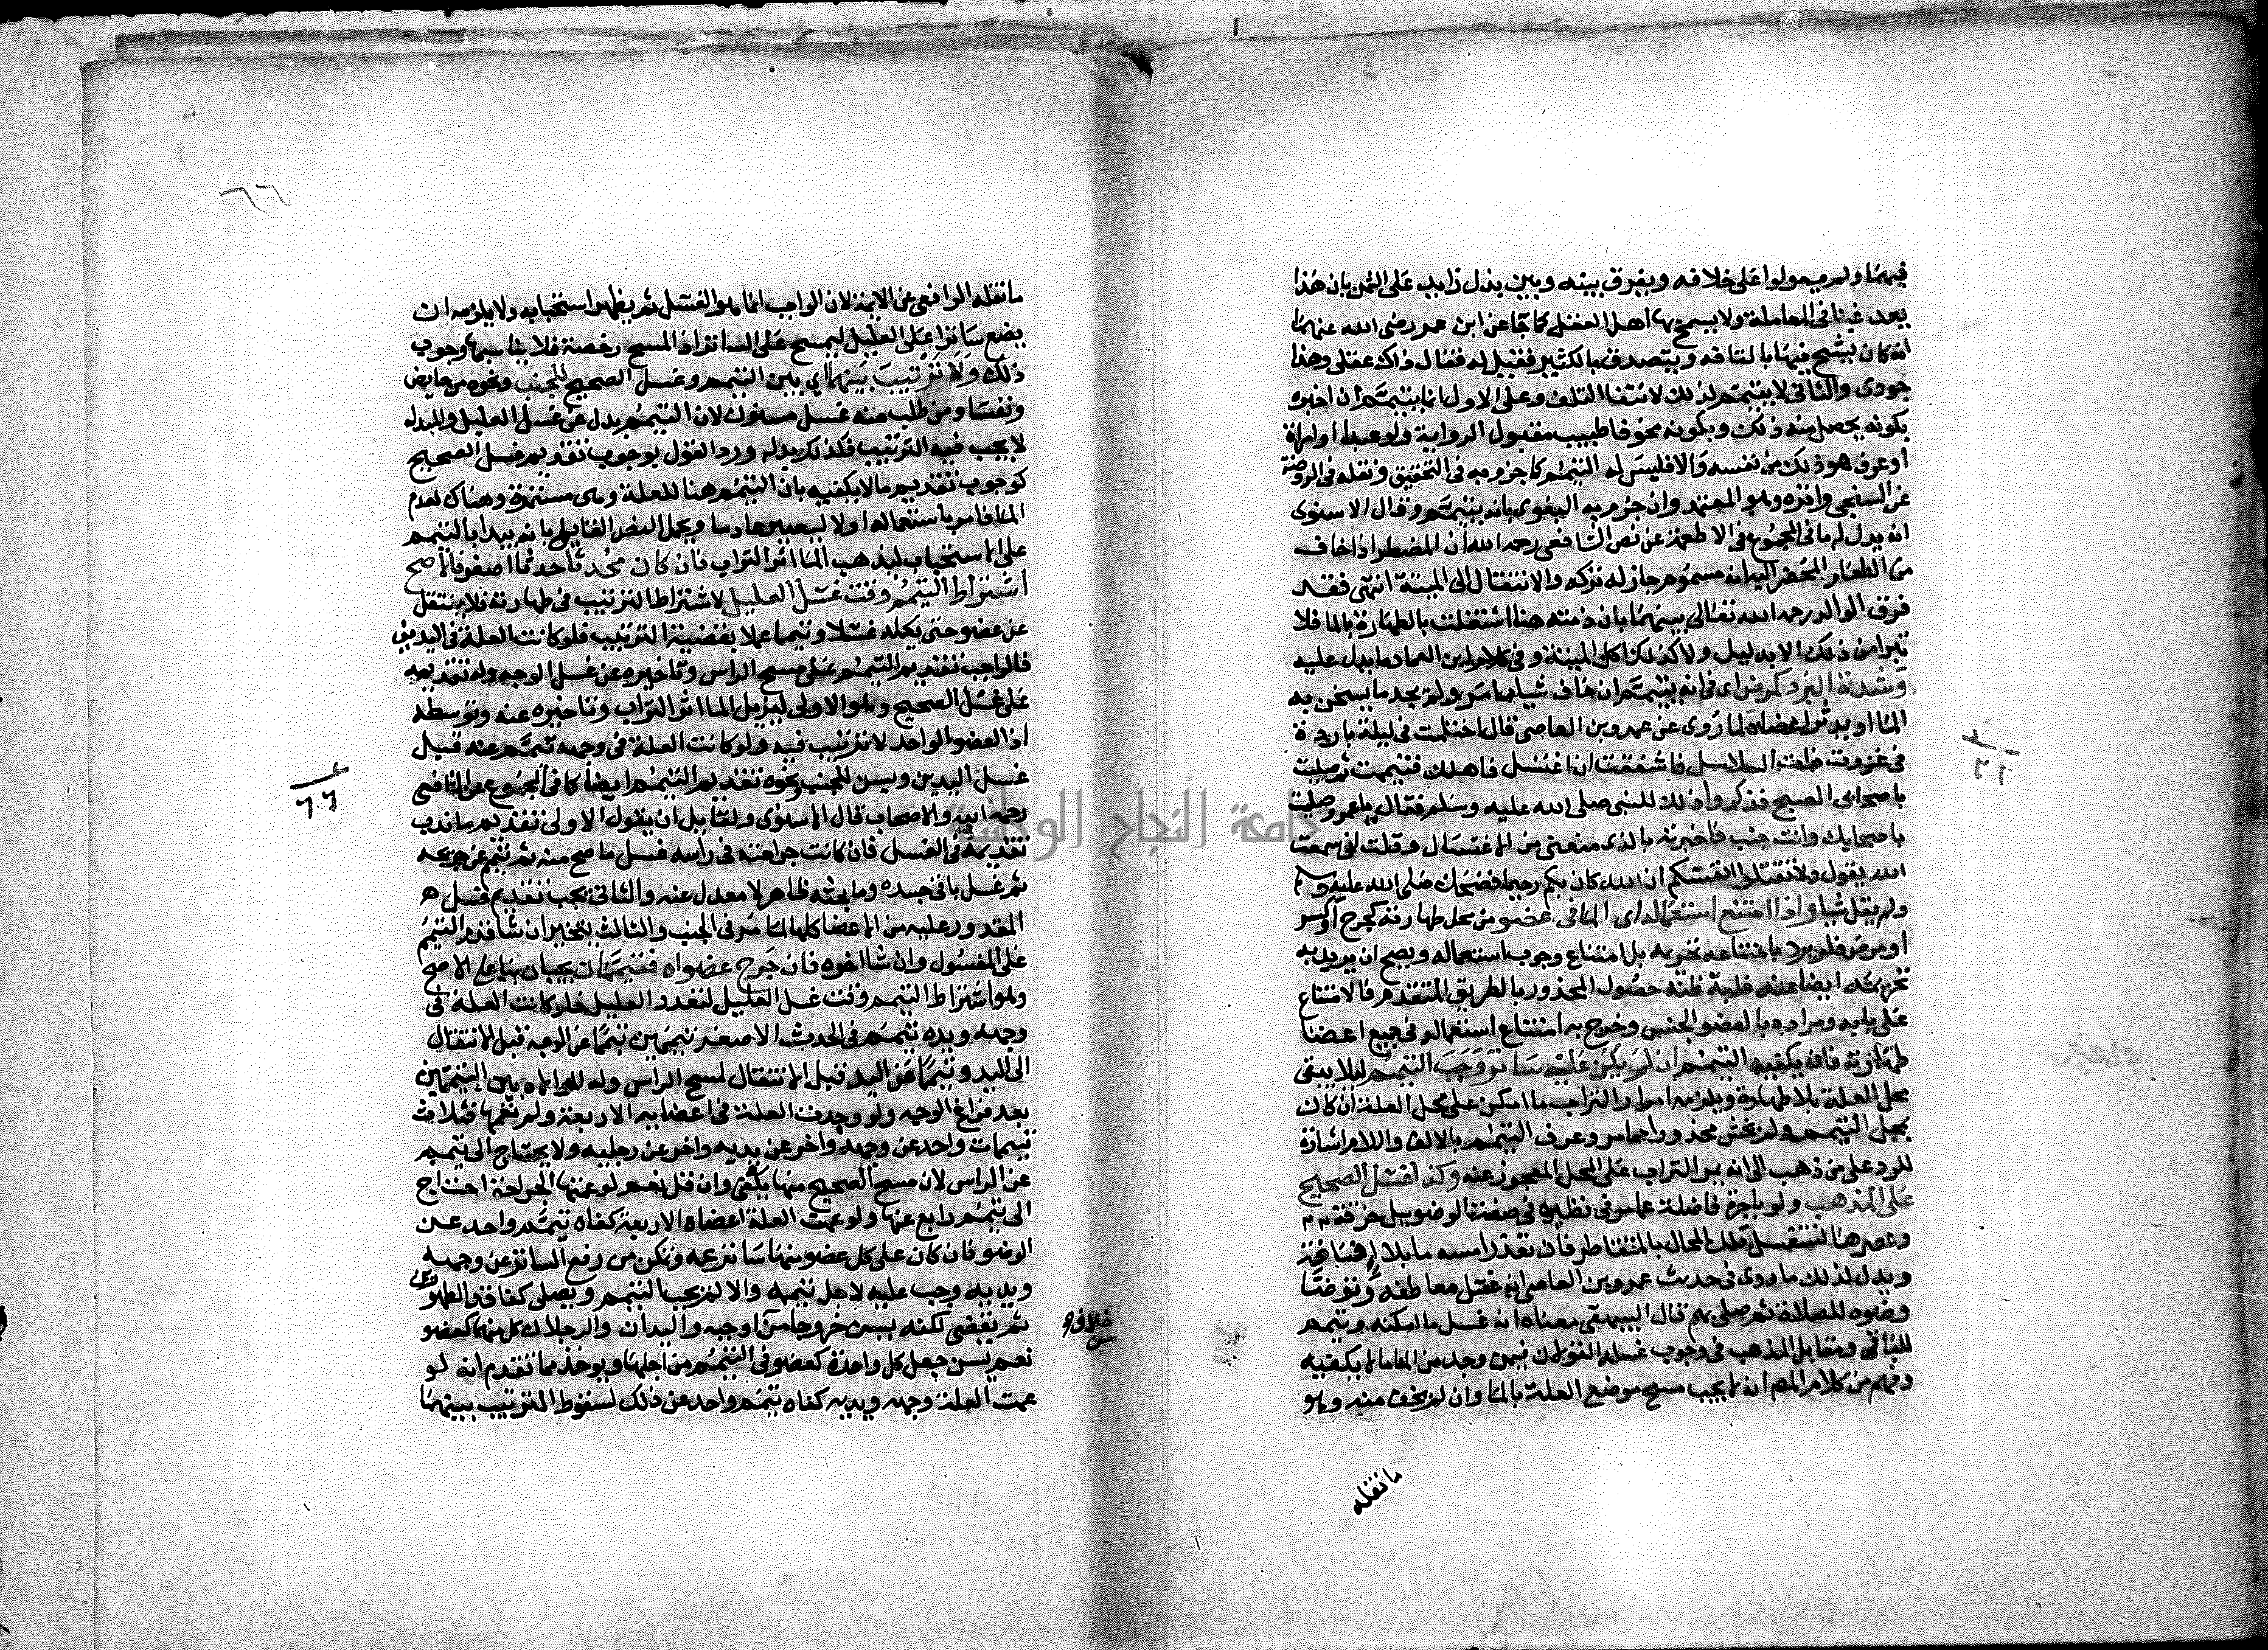 فيهما ولم يعولوا على خلافه ويفرق بينه وبين بذل زايد على الثمن بان هذا
يعد غبنا في المعاملة ولا يسمح بها اهل العقل كما جا عن ابن عمر رضي الله عنهما
انه كان يشح فيها بالتافه ويتصدق بالكثير فقيل له فقال ذاك عقلي وهذا
جودي والثاني لا يتيمم لذلك لانتفا التلف وعلى الاول انما يتيمم ان اخبره
بكونه يحصل منه ذلك وبكونه مخوفا طبيب مقبول الرواية ولو عبدا او امراة
او عرف هو ذلك من نفسه والا فليس له التيمم كما جزم به في التحقيق ونقله في الروضة
عن السنجي واقره وهو المعتمد وان جزم به البغوي بانه يتيمم وقال الاسنوي
انه يدل له ما في المجموع في الاطعمة عن نص الشافعي رحمه الله ان المضطر اذا خاف
من الطعام المحضر اليه انه مسموم جاز له تركه والانتقال الى الميتة انتهى فقد
فرق الوالد رحمه الله تعالى بينهما بان ذمته هنا اشتغلت بالطهارة بالما فلا
تبرا من ذلك الا بدليل ولا كذلك اكل الميتة وفي كلام ابن العماد ما يدل عليه
وشدة البرد كمرض اي في انه يتيمم ان خاف شيا مما مر ولم يجد ما يسخن به
الما او يدثر اعضاه لما روي عن عمرو بن العاصي قال احتلمت في ليلة باردة
في غزوة ذات السلاسل فاشفقت ان اغتسل فاهلك فتيممت ثم صليت
باصحابي الصبح فذكروا ذلك للنبي صلى الله عليه وسلم فقال يا عمرو صليت
باصحابك وانت جنب فاخبرته بالذي منعني من الاغتسال وقلت اني سمعت
الله يقول ولا تقتلوا انفسكم ان الله كان بكم رحيما فضحك صلى الله عليه وسلم
ولم يقل شيا واذا امتنع استعماله اي الما في عضو من محل طهارته كجرح او كسر
او مرض فلم يرد بامتناعه تحريمه بل امتناع وجوب استعماله ويصح ان يريد به
تحريمه ايضا عند غلبة ظنه حصول المحذور بالطريق المتقدم فالامتناع
على بابه ومراده بالعضو الجنس وخرج به امتناع استعماله في جميع اعضا
طهارته فانه يكفيه التيمم ان لم يكن عليه ساتر وجب التيمم ليلا يبقى
محل العلة بلا طهارة ويلزمه امرار التراب ما امكن على محل العلة ان كان
بمحل التيمم ولم يخش محذورا مما مر وعرف التيمم بالالف واللام اشارة
للرد على من ذهب الى انه يمر التراب على المحل المعجوز عنه وكذا غسل الصحيح
على المذهب ولو باجرة فاضلة عما مر في نظيره في صفة الوضو ببل خرقة
وعصرها لتنغسل تلك المحال بالمتقاطر فان تعذر امسه ما بلا افاضة
ويدل لذلك ما روي في حديث عمرو بن العاصي انه غسل معاطفه وتوضا
وضوه للصلاة ثم صلى بهم قال البيهقي معناه انه غسل ما امكنه وتيمم
للباقي ومقابل المذهب في وجوب غسله القولان فيمن وجد من الما ما لا يكفيه
وفهم من كلام المص انه لا يجب مسح موضع العلة بالما وان لم يخف منه وهو
ما نقله
٦٦
ما نقله الرافعي عن الايمة لان الواجب انما هو الغسل ثم يظهر استحبابه ولا يلزمه ان
يضع ساترا على العليل ليمسح على الساتر اذ المسح رخصة فلا يناسبها وجوب
ذلك ولا ترتيب بينهما اي بين التيمم وغسل الصحيح للجنب ونحوه من حايض
ونفسا ومن طلب منه غسل مسنون لان التيمم بدل عن غسل العليل والمبدل
لا يجب فيه الترتيب فكذلك بدله ورد القول بوجوب تقديم غسل الصحيح
كوجوب تقديم ما لا يكفيه بان التيمم هنا للعلة وهي مستمرة وهناك لعدم
الما فامر باستعماله اولا ليصير عادما ويحمل النص القايل بانه يبدا بالتيمم
على الاستحباب ليذهب الما اثر التراب فان كان محدثا حدثا اصغر فالاصح
اشتراط التيمم وقت غسل العليل لاشتراط الترتيب في طهارته فلا ينتقل
عن عضو حتى يكمله غسلا وتيمما عملا بقضية الترتيب فلو كانت العلة في اليد مثلا
فالواجب تقديم التيمم على مسح الراس وتاخيره عن غسل الوجه وله تقديمه
على غسل الصحيح وهو الاولى ليزيل الما اثر التراب وتاخيره عنه وتوسطه
اذ العضو الواحد لا ترتيب فيه ولو كانت العلة في وجهه تيمم عنه قبل
غسل اليدين ويسن للجنب ونحوه تقديم التيمم ايضا كما في المجموع عن الشافعي
رحمه الله والاصحاب قال الاسنوي ولقايل ان يقول الاولى تقديم ما ندب
تقديمه في الغسل فان كانت جراحته في راسه غسل ما صح منه ثم تيمم عن جريحه
ثم غسل باقي جسده وما بحثه ظاهر لا معدل عنه والثاني يجب تقديم غسل
المقدور عليه من الاعضا كلها لما مر في الجنب والثالث يتخير ان شا قدم التيمم
على المغسول وان شا اخره فان جرح عضواه فتيممان يجبان بنا على الاصح
وهو اشتراط التيمم وقت غسل العليل لتعدد العليل فلو كانت العلة في
وجهه ويده تيمم في الحدث الاصغر تيممين تيمما عن الوجه قبل الانتقال
الى اليد وتيمما عن اليد قبل الانتقال لمسح الراس وله الموالاة بين التيممين
بعد فراغ الوجه ولو وجدت العلة في اعضايه الاربعة ولم تعمها فثلاث
تيممات واحد عن وجهه واخر عن يديه واخر عن رجليه ولا يحتاج الى تيمم
عن الراس لان مسح الصحيح منها يكفي وان قل نعم لو عمتها الجراحة احتاج
الى تيمم رابع عنها ولو عمت العلة اعضاه الاربعة كفاه تيمم واحد عن
الوضو فان كان على كل عضو منها ساتر عمه وتمكن من رفع الساتر عن وجهه
ويديه وجب عليه لاجل تيممه والا لم يجب التيمم ويصلي كفاقد الطهورين
ثم يقضي لكنه يسن خروجا من اوجبه واليدان والرجلان كل منهما كعضو
خلاف
نعم يسن جعل كل واحدة كعضو في التيمم من اجلها ويوخذ مما تقدم انه لو
عمت العلة وجهه ويديه كفاه تيمم واحد عن ذلك لسقوط الترتيب بينهما
جامعة النجاح الوطنية